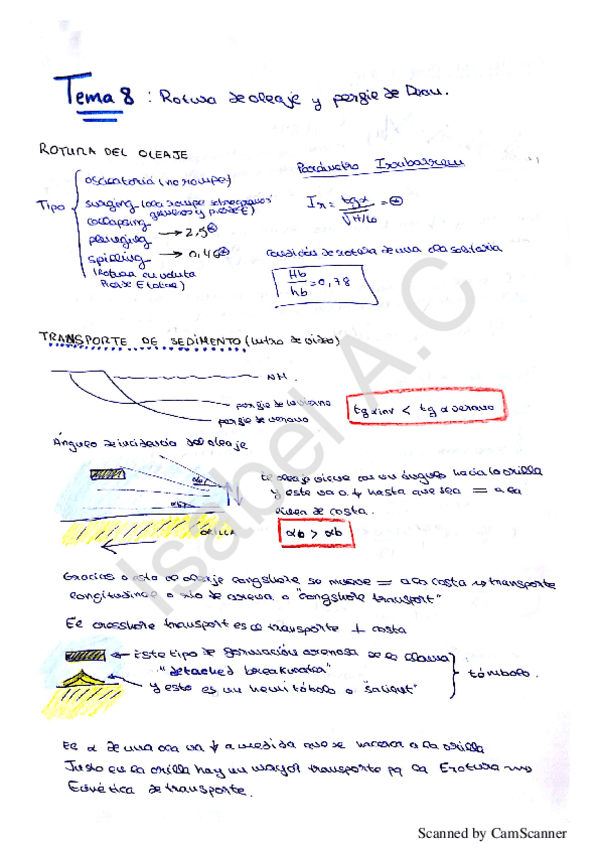 Tema 8 : Rotura de oleaje y perfil de Dean.
ROTURA DEL OLEAJE
Parámetro Iribarren
Tipo
oscilatoria (no rompe)
surging (ola rompe sobre
collapsing
plunging → 2,5
spilling → 0,46
(Rotura
Ir = tgα / √H/Lo =
condición de rotura de una ola solitaria
Hb / hb = 0,78
TRANSPORTE DE SEDIMENTO (Intro de video)
NM.
perfil de invierno
perfil de verano
tg α inv < tg α verano
Ángulo de incidencia del oleaje
El oleaje viene con un ángulo hacia la orilla
y este va a ↓ hasta que sea = a la
línea de costa.
ORILLA
αo > αb
Gracias a esto el oleaje longshore se mueve = a la costa → transporte
longitudinal o río de arena o "longshore transport"
El crosshore transport es el transporte ⊥ costa
Este tipo de formación arenosa se le llama
"detached breakwater"
y esto es un hemitómbolo o "salient"
tómbolo.
El α de una ola va ↓ a medida que se acerca a la orilla
Justo en la orilla hay un mayor transporte pq la E rotura →
E cinética de transporte.
Isabel A.C
Scanned by CamScanner